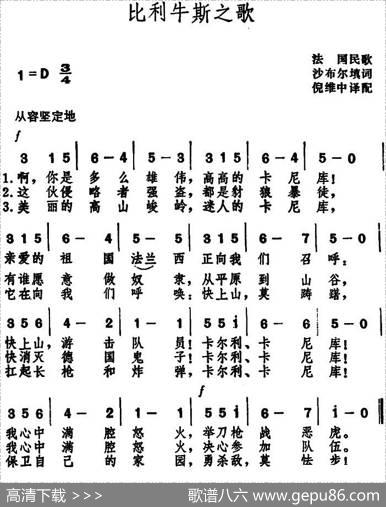 比利牛斯之歌
1=D 3/4
法 国民歌
沙布尔填词
倪维中译配
从容坚定地
f
3 1 5 | 6 - 4 | 5 - 3 | 3 1 5 | 6 - 4 | 5 - 0 |
1.啊,你是 多 么 雄 伟,高高的 卡 尼 库!
2.这 伙侵 略 者 强 盗,都是豺 狼 暴 徒,
3.美 丽的 高 山 峻 岭,迷人的 卡 尼 库,
3 1 5 | 6 - 4 | 5 - 1 | 3 1 5 | 6 - 7 | 5 - 0 |
亲爱的 祖 国 法兰 西 正向我 们 召 呼:
有谁愿 意 做 奴 隶,从平原 到 山 谷,
它在向 我 们 呼 唤:快上山,莫 踌 躇,
3 5 6 | 4 - 2 | 1 - 1 | 5 5 i | 6 - 6 | 5 - 0 |
快上山,游 击 队 员!卡尔利、卡 尼 库!
快消灭 德 国 鬼 子!卡尔利、卡 尼 库!
扛起长 枪 和 炸 弹,卡尔利、卡 尼 库!
f
3 5 6 | 4 - 2 | 1 - 1 | 5 5 i | 6 - 7 | i - 0 |
我心中 满 腔 怒 火,举刀枪 战 恶 虎。
我心中 满 腔 怒 火,决心参 加 队 伍。
保卫自 己 的 家 园,勇杀敌,莫 怯 步!
高清下载 >>>
歌谱八六 www.gepu86.com